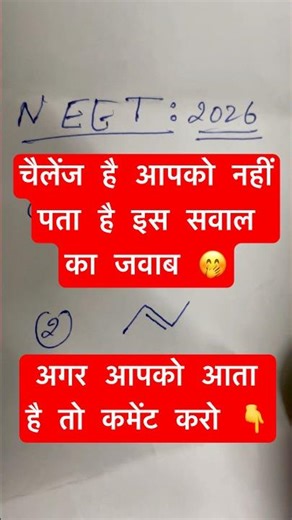 NEET : 2026
चैलेंज है आपको नहीं
पता है इस सवाल
का जवाब 🤭
2
अगर आपको आता
है तो कमेंट करो 👇